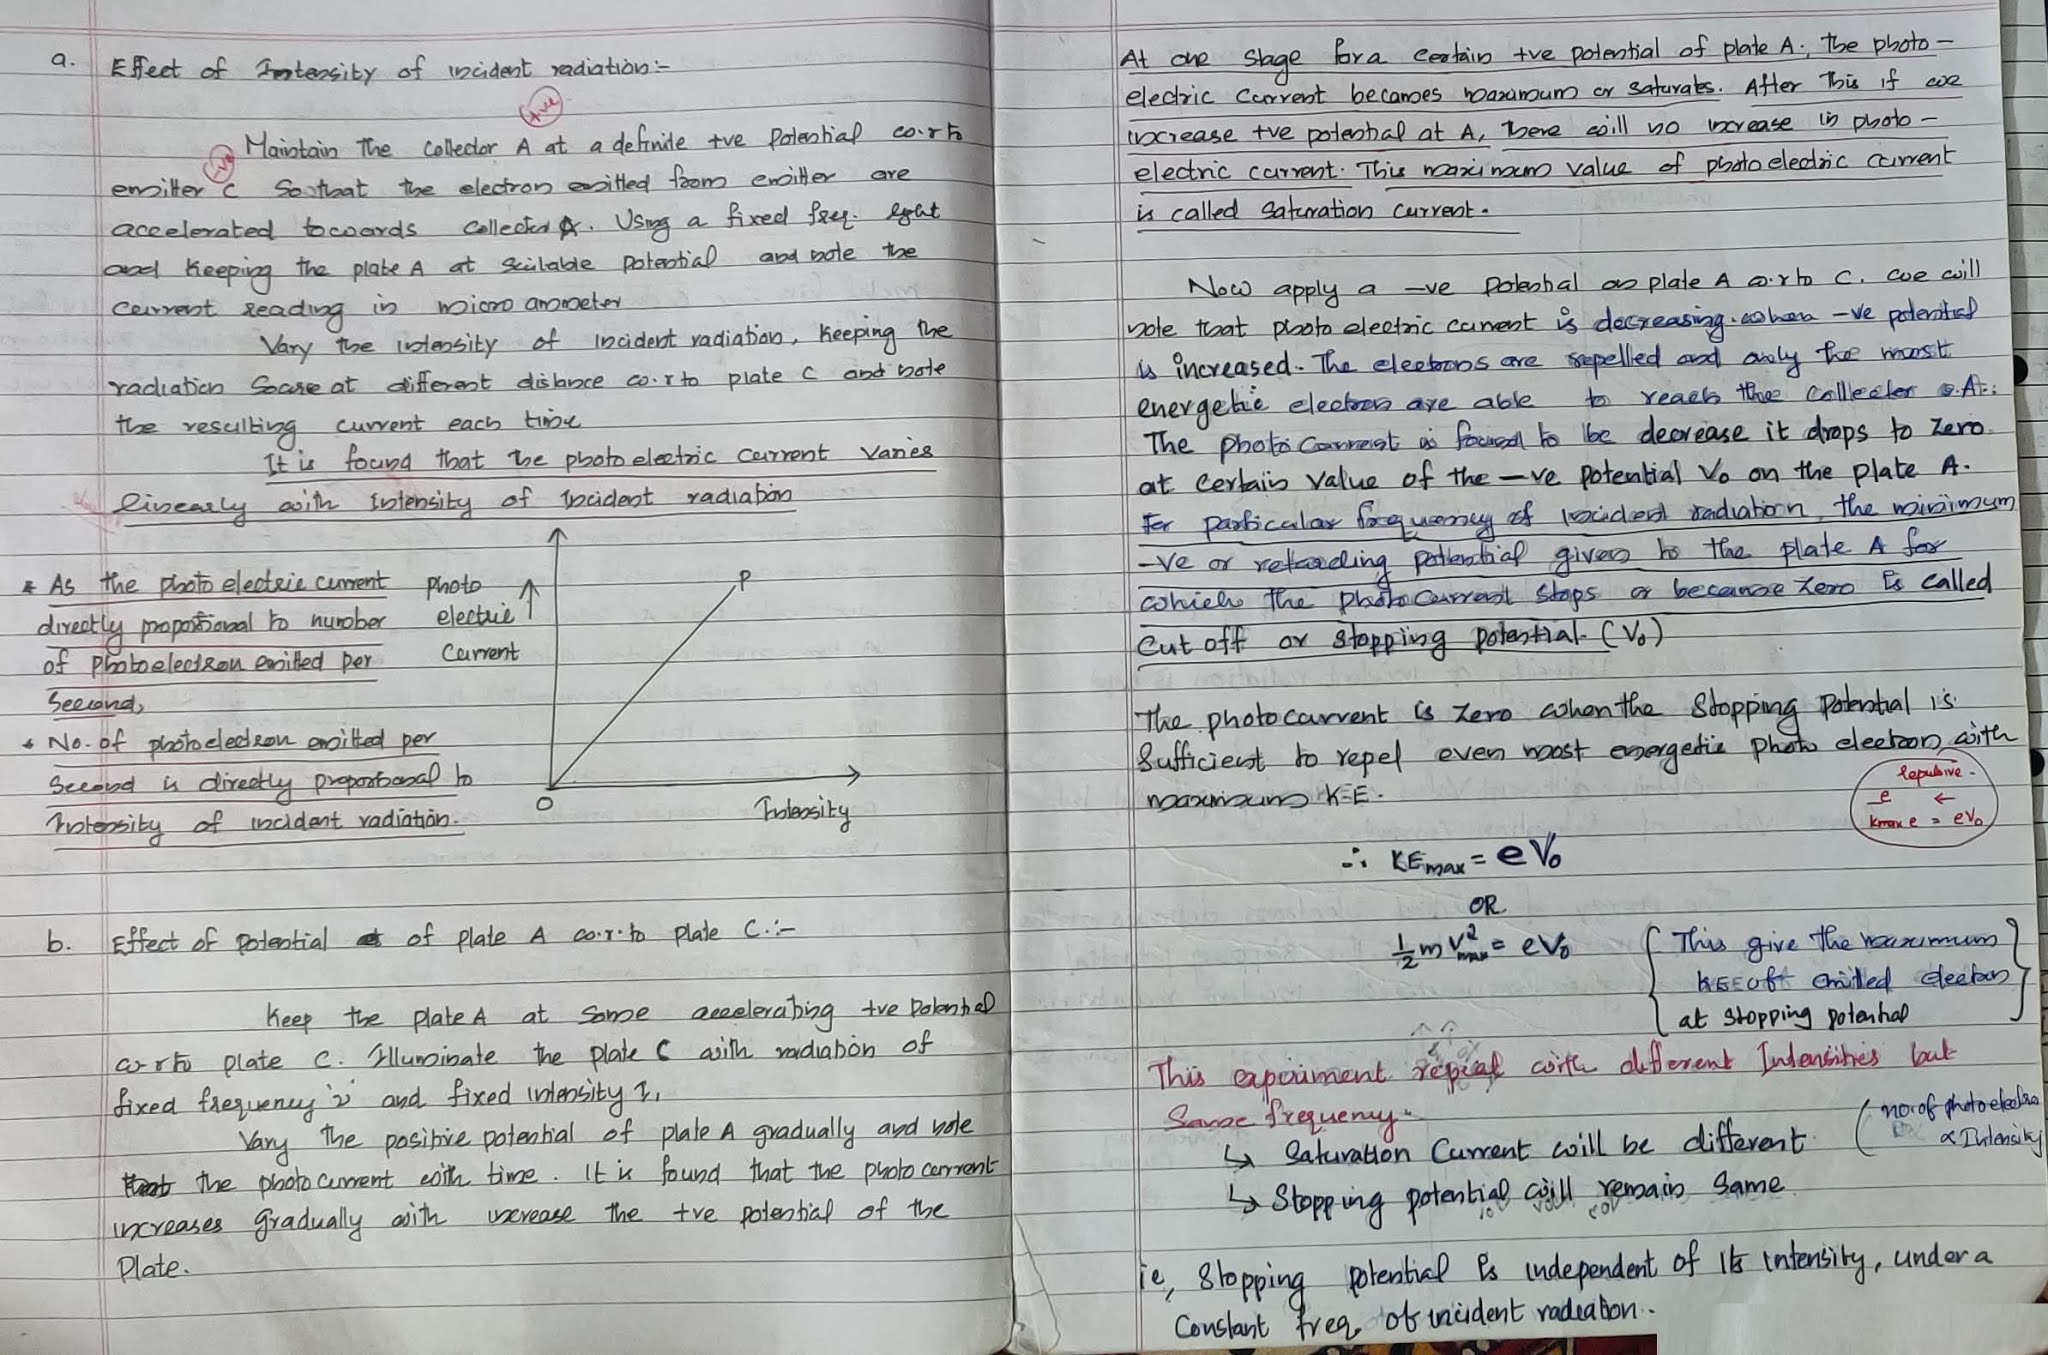 a. Effect of Intensity of incident radiation:-
+ve
Maintain The collector A at a definite +ve Potential w.r.to
-ve
emitter C So that the electron emitted from emitter are
accelerated towards collector A. Using a fixed freq. light
and Keeping the plate A at Suitable potential and note the
current reading in micro ammeter
Vary the intensity of incident radiation, Keeping the
radiation Sourse at different distance w.r.to plate C and note
the resulting current each time
It is found that the photoelectric current varies
linearly with Intensity of Incident radiation
* As the photoelectric current
directly proportional to number
of photoelectron emitted per
Second,
* No. of photoelectron emitted per
Second is directly proportional to
Intensity of incident radiation.
Photo
electric
Current
P
O
Intensity
b. Effect of potential of plate A w.r.to plate C:-
Keep the plate A at Some accelerating +ve Potential
w.r.to plate C. Illuminate the plate C with radiation of
fixed frequency 'ν' and fixed intensity I,
Vary the positive potential of plate A gradually and note
the photocurrent with time. It is found that the photo current
increases gradually with increase the +ve potential of the
Plate.
At one stage for a certain +ve potential of plate A, the photo-
electric current becomes maximum or saturates. After this if we
increase +ve potential at A, there will no increase in photo-
electric current. This maximum value of photoelectric current
is called saturation current.
Now apply a -ve Potential on plate A w.r.to C. we will
note that photo electric current is decreasing when -ve potential
is increased. The electrons are repelled and only the most
energetic electron are able to reach the collector A.
The photo current is found to be decrease it drops to zero
at certain value of the -ve potential V₀ on the plate A.
For particular frequency of incident radiation, the minimum
-ve or retarding potential given to the plate A for
which the photocurrent stops or becomoe zero is called
Cut off or stopping potential (V₀)
The photocurrent is zero when the stopping potential is
sufficient to repel even most energetic photo electron, with
maximum K.E.
repulsive.
e ←
kmax e = eV₀
∴ KEmax = eV₀
OR
½ m v²max = eV₀
{ This give the maximum
KE of emitted electron
at stopping potential }
This experiment repeat with different Intensities but
Same frequency.
↳ Saturation Current will be different
(no. of photoelectro
∝ Intensity
↳ Stopping potential will remain same
ie, Stopping potential is independent of its intensity, under a
Constant freq. of incident radiation.